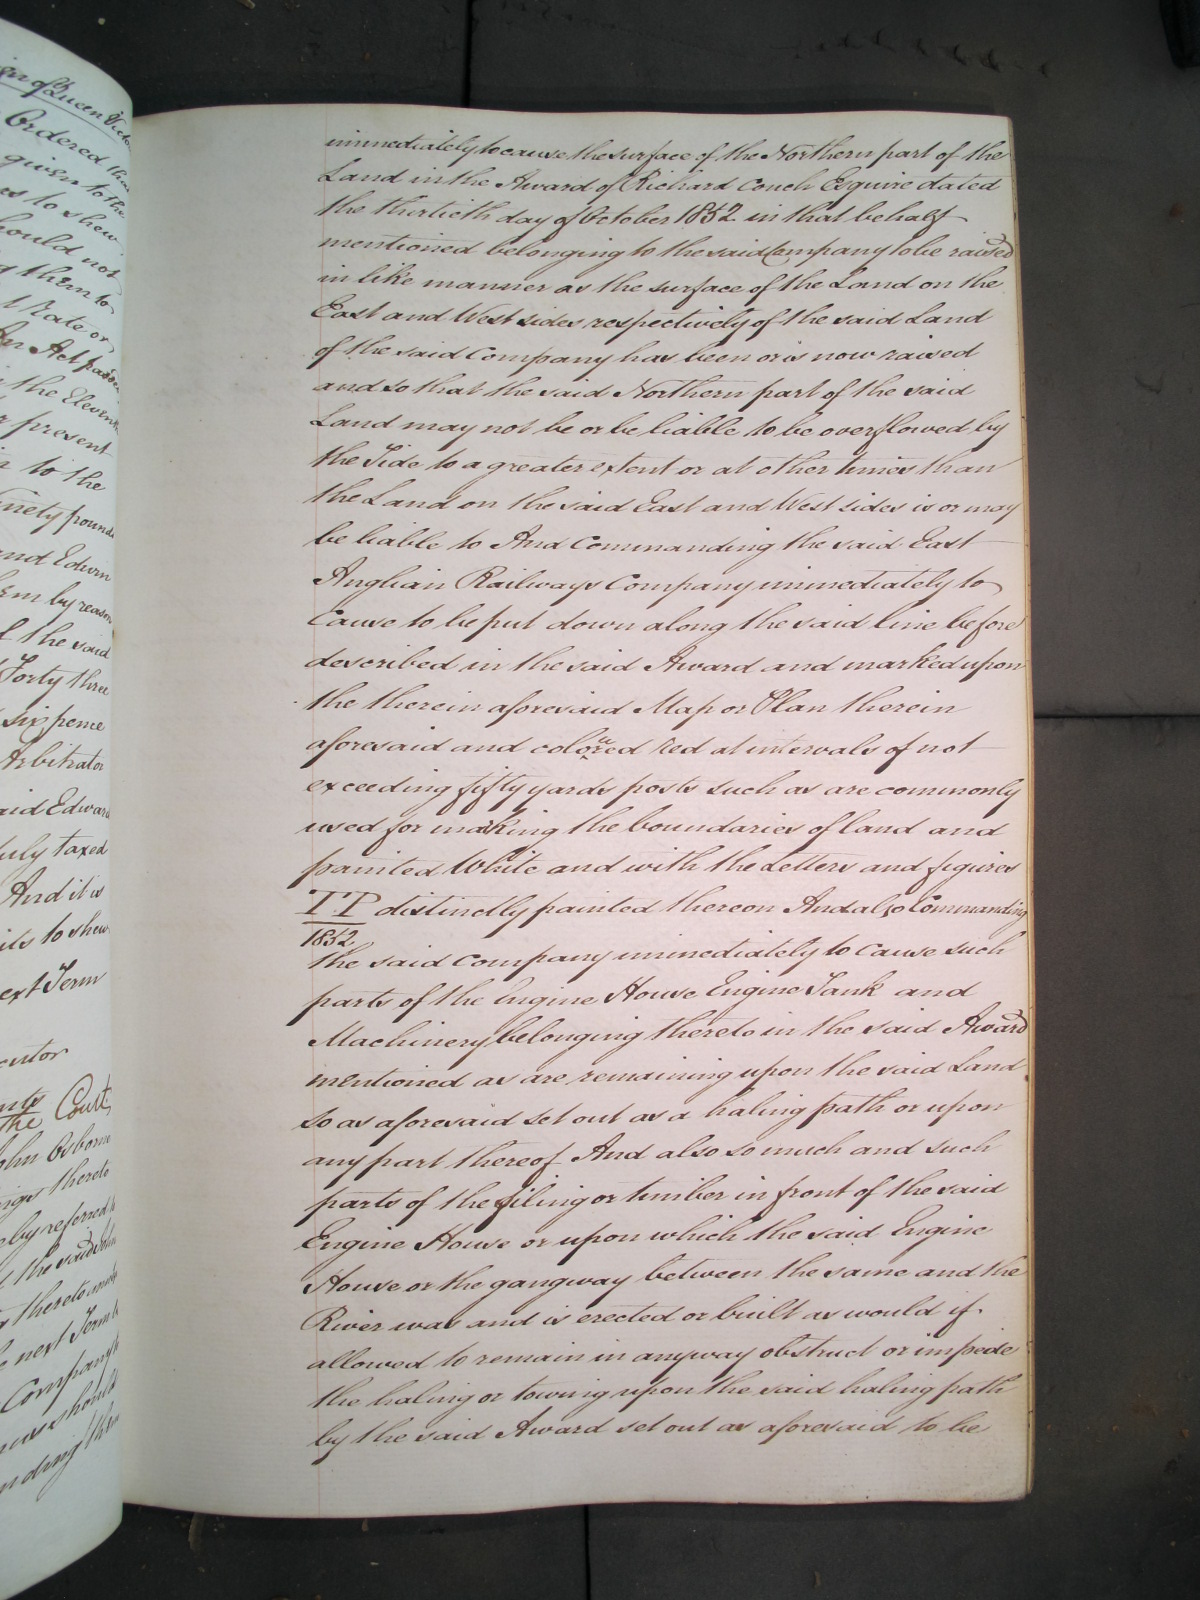 ign of Queen Victo
Ordered that
given to the
es to shew
hould not
g them to
t Rate or
der Act passed
the Eleventh
r present
in to the
Ninety pounds
and Edwin
them by reason
f the said
Forty three
six pence
Arbitrator
aid Edward
duly taxed
And it is
its to shew
ext Term
the Court
John Osborne
ings thereto
eby referred
the said John
thereto
e next Term
Company
should
immediately to cause the surface of the Northern part of the
Land in the Award of Richard Couch Esquire dated
the thirtieth day of October 1852 in that behalf
mentioned belonging to the said Company to be raised
in like manner as the surface of the Land on the
East and West sides respectively of the said Land
of the said Company has been or is now raised
and so that the said Northern part of the said
Land may not be or be liable to be overflowed by
the Tide to a greater extent or at other times than
the Land on the said East and West sides is or may
be liable to And Commanding the said East
Anglian Railways Company immediately to
Cause to be put down along the said line before
described in the said Award and marked upon
the therein aforesaid Map or Plan therein
aforesaid and coloured red at intervals of not
exceeding fifty yards posts such as are commonly
used for marking the boundaries of land and
painted White and with the Letters and figures
T.P distinctly painted thereon And also Commanding
1852
the said Company immediately to cause such
parts of the Engine House Engine Tank and
Machinery belonging thereto in the said Award
mentioned as are remaining upon the said Land
so as aforesaid set out as a haling path or upon
any part thereof And also so much and such
parts of the piling or timber in front of the said
Engine House or upon which the said Engine
House or the gangway between the same and the
River was and is erected or built as would if
allowed to remain in anyway obstruct or impede
the haling or towing upon the said haling path
by the said Award set out as aforesaid to be